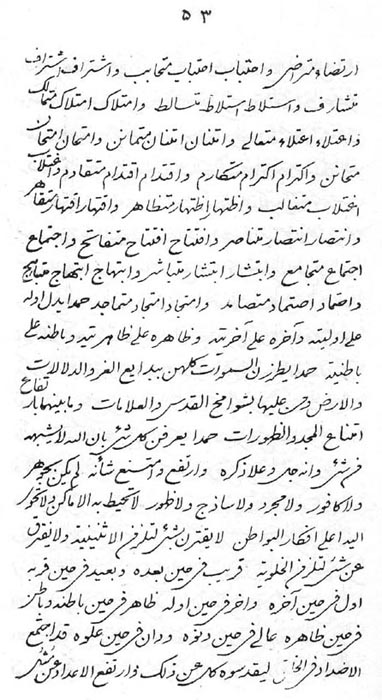 ۵۳
ارتضاء متراضی واحتباب احتباب متحابب واشتراف اشتراف
متشارف واستلاط استلاط متسالط وامتلاک امتلاک متمالک
واعتلاء اعتلاء متعالی وامتنان امتنان متمانن وامتحان امتحان
متحانن واکترام اکترام متکارم واقتدام اقتدام متقادم واغتلاب
اغتلاب متغالب واظتهار اظتهار متظاهر واقتهار اقتهار متقاهر
وانتصار انتصار متناصر وافتتاح افتتاح متفاتح واجتماع
اجتماع متجامع وابتشار ابتشار متباشر وابتهاج ابتهاج متباهج
واصتماد اصتماد متصامد وامتجاد امتجاد متماجد حمدا یدل اوله
علی اولیته وآخره علی آخریته وظاهره علی ظاهریته وباطنه علی
باطنیته حمدا یطرزن السموات کلهن ببدایع الغر والدلالات
والارض ومن علیها بشوامخ القدس والعلامات وما بینهما بار تفاع
امتناع المجد والظهورات حمدا یعرفن کل شئ بان الله لا یشبهه
من شئ وانه جل وعلا ذکره وارتفع وامتنع شأنه لم یکن بجوهر
ولا کافور ولا مجرد ولا ساذج ولا ظهور لا تحیط به الاماکن ولا تحوی
الیه اعلی افکار البواطن لا یقترن بشئ لتلزم الاثنینیة ولا یفترق
عن شئ لتلزم الخلویة قریب فی حین بعده وبعید فی حین قربه
اول فی حین آخره وآخر فی حین اوله ظاهر فی حین باطنه وباطن
فی حین ظاهره عالی فی حین دنوه ودان فی حین علوه قد اجتمع
الاضداد فی لیقدسوه کل عن ذلک وارتفع الاعداد عن شئ